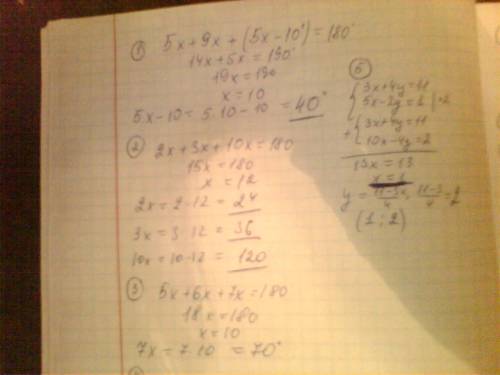 ① 5x+9x+(5x-10°)=180°
14x+5x=190°
19x=190
x=10
5x-10=5·10-10=40°
② 2x+3x+10x=180
15x=180
x=12
2x=2·12=24
3x=3·12=36
10x=10·12=120
③ 5x+6x+7x=180
18x=180
x=10
7x=7·10=70°
⑤
3x+4y=11
5x-2y=1 |·2
+ 3x+4y=11
10x-4y=2
13x=13
x=1
y=(11-3x)/4=(11-3)/4=2
(1;2)